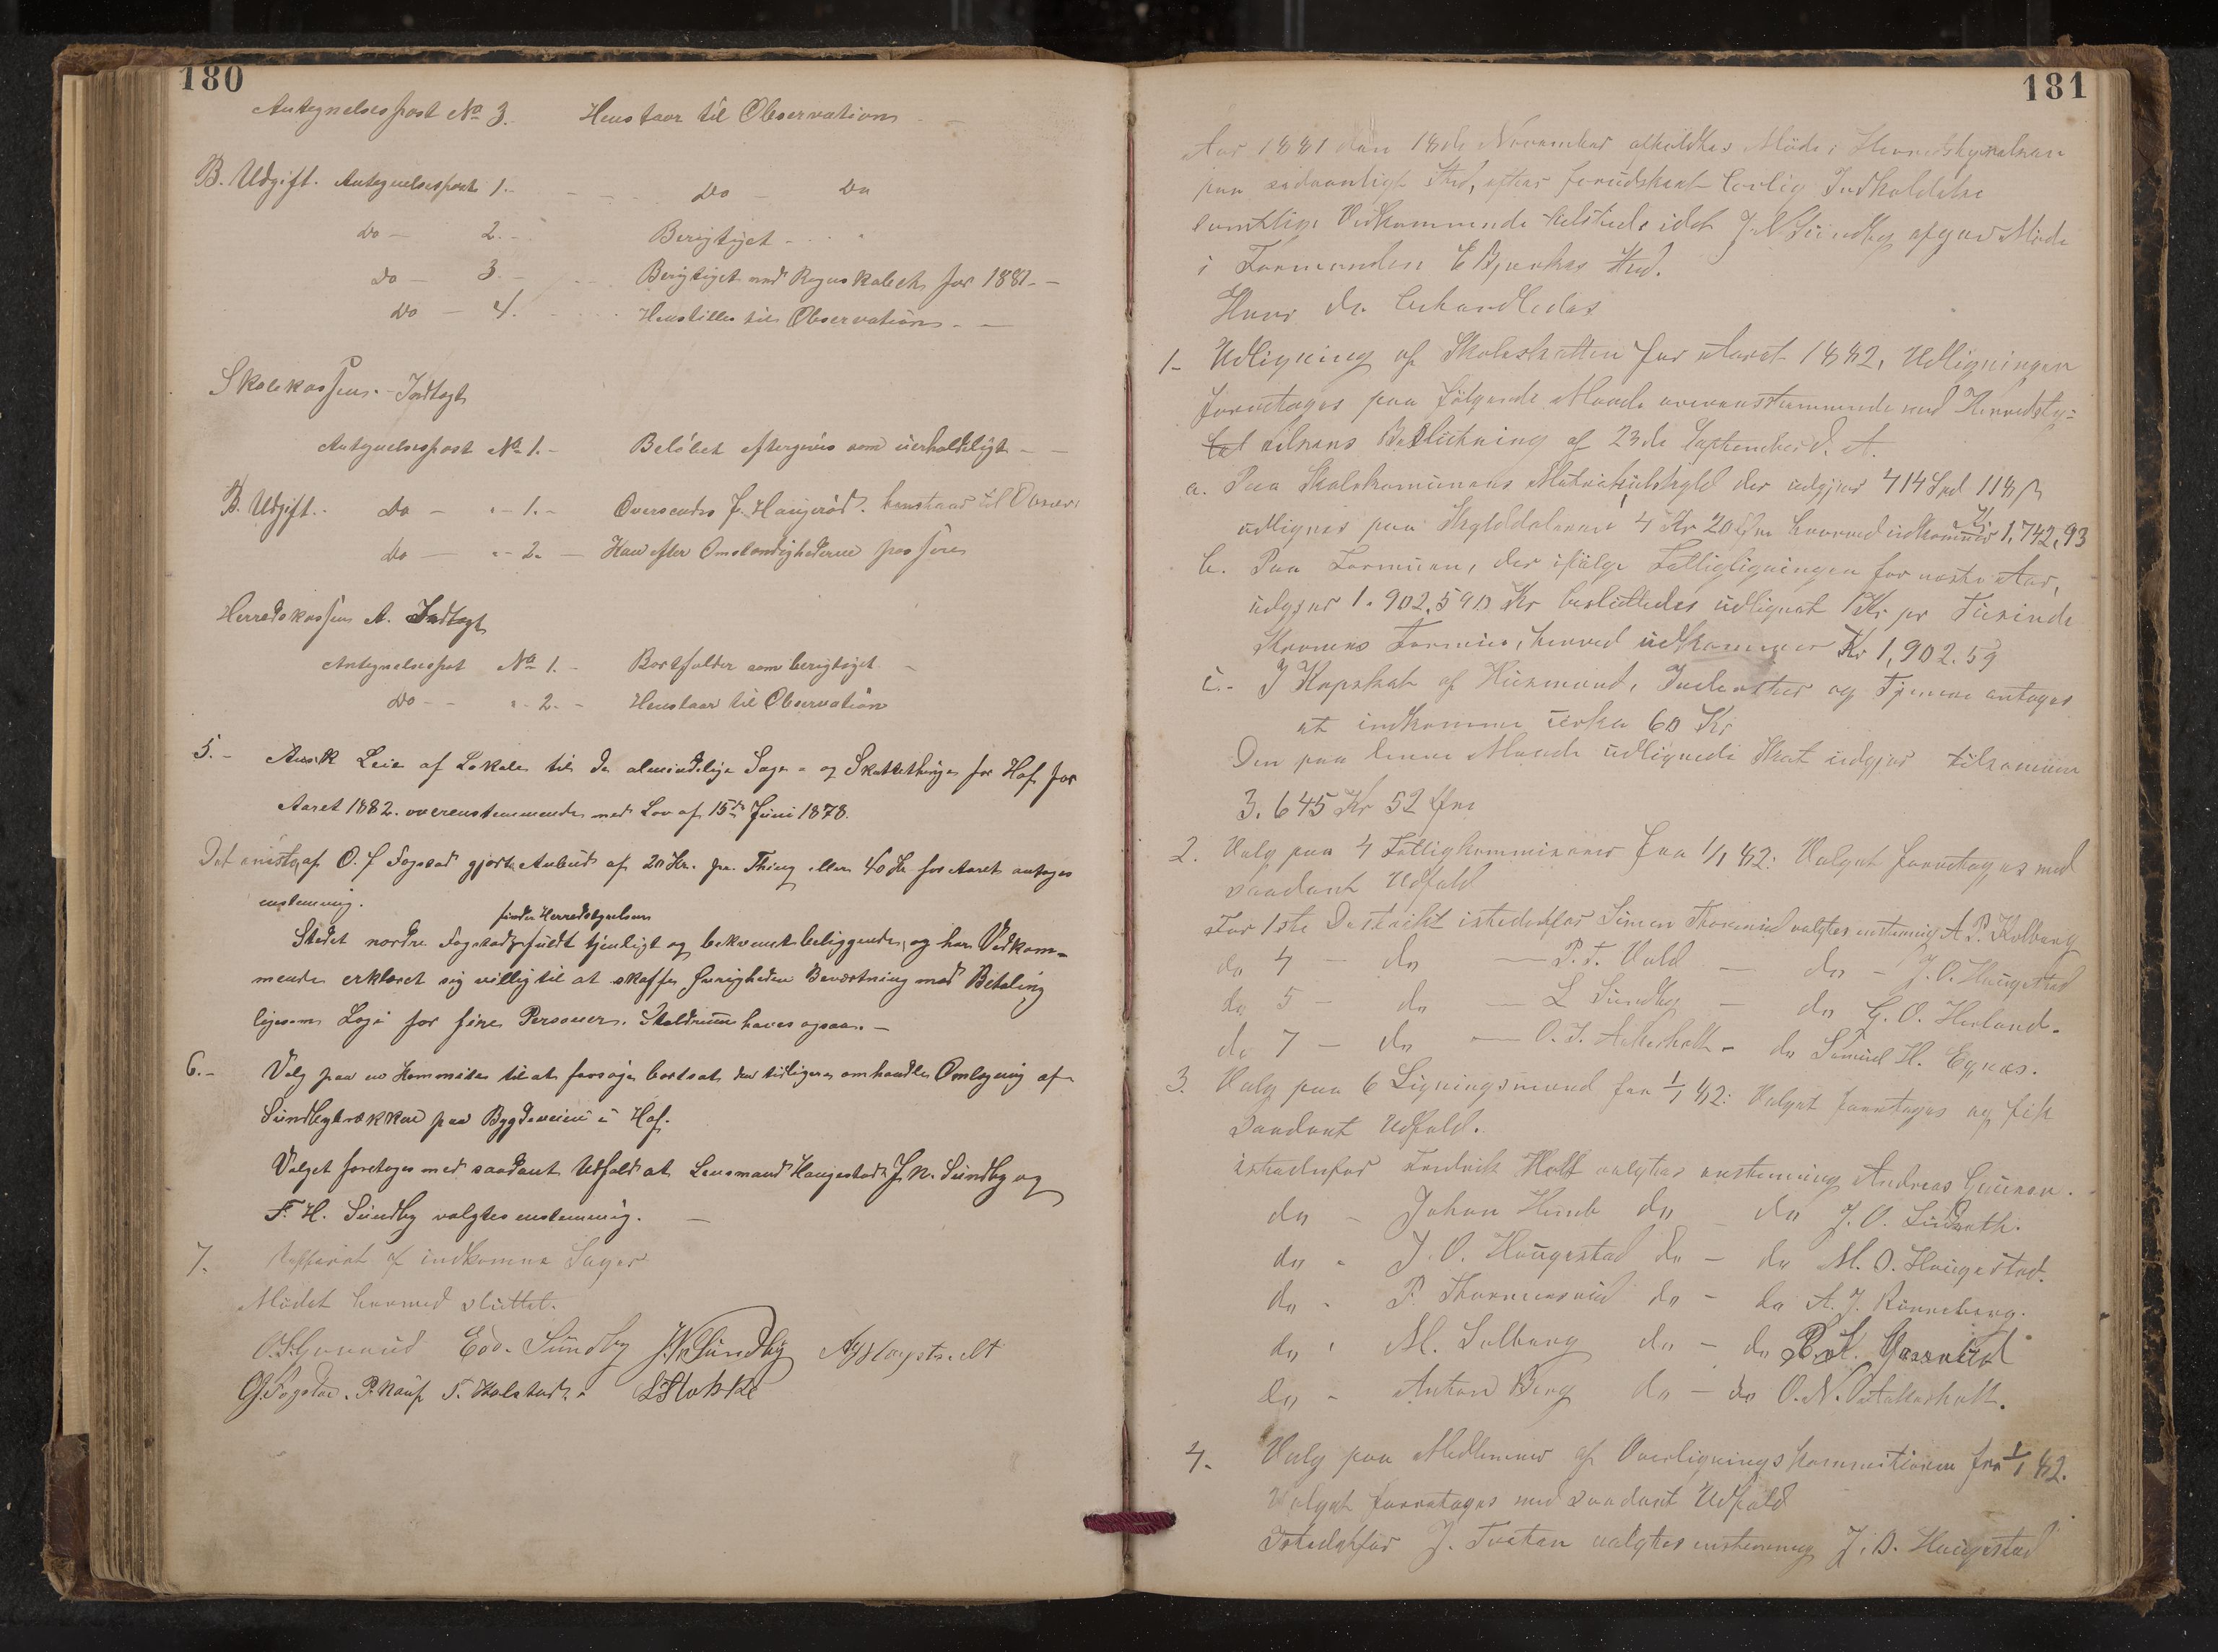 180
Antegnelsespost No 3. Henstaar til Observation
B. Udgift. Antegnelsespost 1. - Do - Do
Do - 2. - Berigtiget -
do - 3. - Berigtiget med Regnskabet for 1881 -
Do - 4. Henstilles til Observation -
Skolekassen. - Indtægt
Antegnelsespost No 1. - Beløbet eftergives som uerholdeligt -
B. Udgift. - Do - " - 1. - Oversendes J. Haugerød. henstaar til Observ:
do - " - 2. - Kan efter Omstændighederne passere
Herredskassen A. Indtægt
Antegnelsespost No 1. - Bortfalder som berigtiget -
Do - - " - 2. - Henstaar til Observation
5. - Leie af Lokale til de almindelige Sage- og Skattethinge for Hof for
Aaret 1882. overenstemmende med Lov af 15de Juni 1878.
Det af O. J Fogstad gjorte Anbud af 20 Kr. pr. Thing eller 40 Kr for Aaret antoges
enstemmig.
finder Herredstyrelsen
Stedet nordre Fogstad fuldt tjenligt og bekvemt beliggende, og har Vedkom-
mende erklæret sig villig til at skaffe Øvrigheden Beværtning mod Betaling
ligesom Logi for fire Personer. Staldrum haves ogsaa. -
6. - Valg paa en Kommite til at forsøge bortsat den tidligere omhandlede Omlægning af
Sundbybrækkene paa Bygdeveien i Hof.
Valget foretoges med saadant Udfald at Lensmand Haugestad, J. N. Sundby og
F. H. Sundby valgtes enstemmig. -
7. Refferat af indkomne Sager
Mødet hermed sluttet.
Edv. Sundby J. N. Sundby
O J Fogstad. P. Kauf T. Holstad. L Stokke
181
Aar 1881 den 18de November afholdtes Møde i Herredstyrelsen
paa sædvanligt Sted, efter forudskeet lovlig Indkaldelse
samtlige Vedkommende tilstede idet J. N Sundby afgav Møde
i Formanden E Bjerkes Sted.
Hvor da behandledes
1 - Udligning af Skoleskatten for Aaret 1882, Udligningen
foretoges paa følgende Maade overenstemmende med Herredsty=
relsens Beslutning af 23de September d. A.
a. Paa Skolekommunens Matrikulskyld der udgjør 414 Spd 118 ß
udlignes paa Skylddaleren 4 Kr 20 Øre hvorved indkommer Kr 1,742,93
b. Paa Formuen, der ifølge Fattigligningen for neste Aar,
udgjør 1.902,590 Kr besluttedes udlignet 1 Kr pr Tusinde
Kroners Formue, herved udkommer Kr 1,902.59
c. - I Kopskat af Husmænd, Inderster og Tjenere antages
at indkomme cirka 60 Kr
Den paa denne Maade udlignede Skat udgjør tilsammen
3.645 Kr 52 Øre
2. Valg paa 4 Fattigkommisærer fra 1/1 82: Valget foretoges med
saadant Udfald
For 1ste Distrikt istedetfor Simen Thorsrud valgtes enstemmig A. P. Kolberg
do 4 - do - P. T. Vald - do - J. O. Haugestad
do 5 - do - L Sundby - do G. O. Herland.
do 7 - do - O. J. Askerholt - do Samuel H. Egnæs.
3. Valg paa 6 Ligningsmænd fra 1/1 82: Valget foretoges og fik
saadant Udfald.
istedenfor Fredrik Holt valgtes enstemmig Andreas Gunsen.
do - Johan Himb do - do J. O. Sundseth.
do - J. O. Haugestad do - do M. O. Haugestad.
do - P. Thormersrud do - do A. J. Rønneberg.
do - M. Solberg do - do
do - Anton Berg do - do O. N. Askerholt.
4. Valg paa Medlemmer af Overligningskommissionen fra 1/1 82.
Valget foretoges med saadant Udfald
Istedetfor J. Tveten valgtes enstemmig J. O. Haugestad